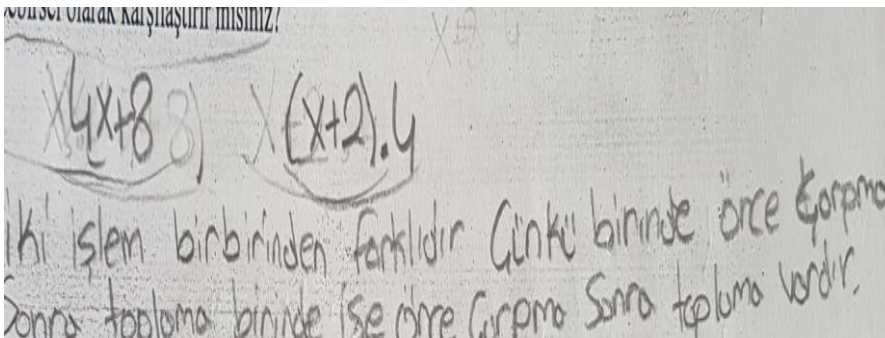 olarak karşılaştırır mısınız?
4x+8 (x+2).4
İki işlem birbirinden farklıdır Çünkü birinde önce Çarpma
Sonra toplama birinde ise önce Çarpma Sonra toplama vardır.